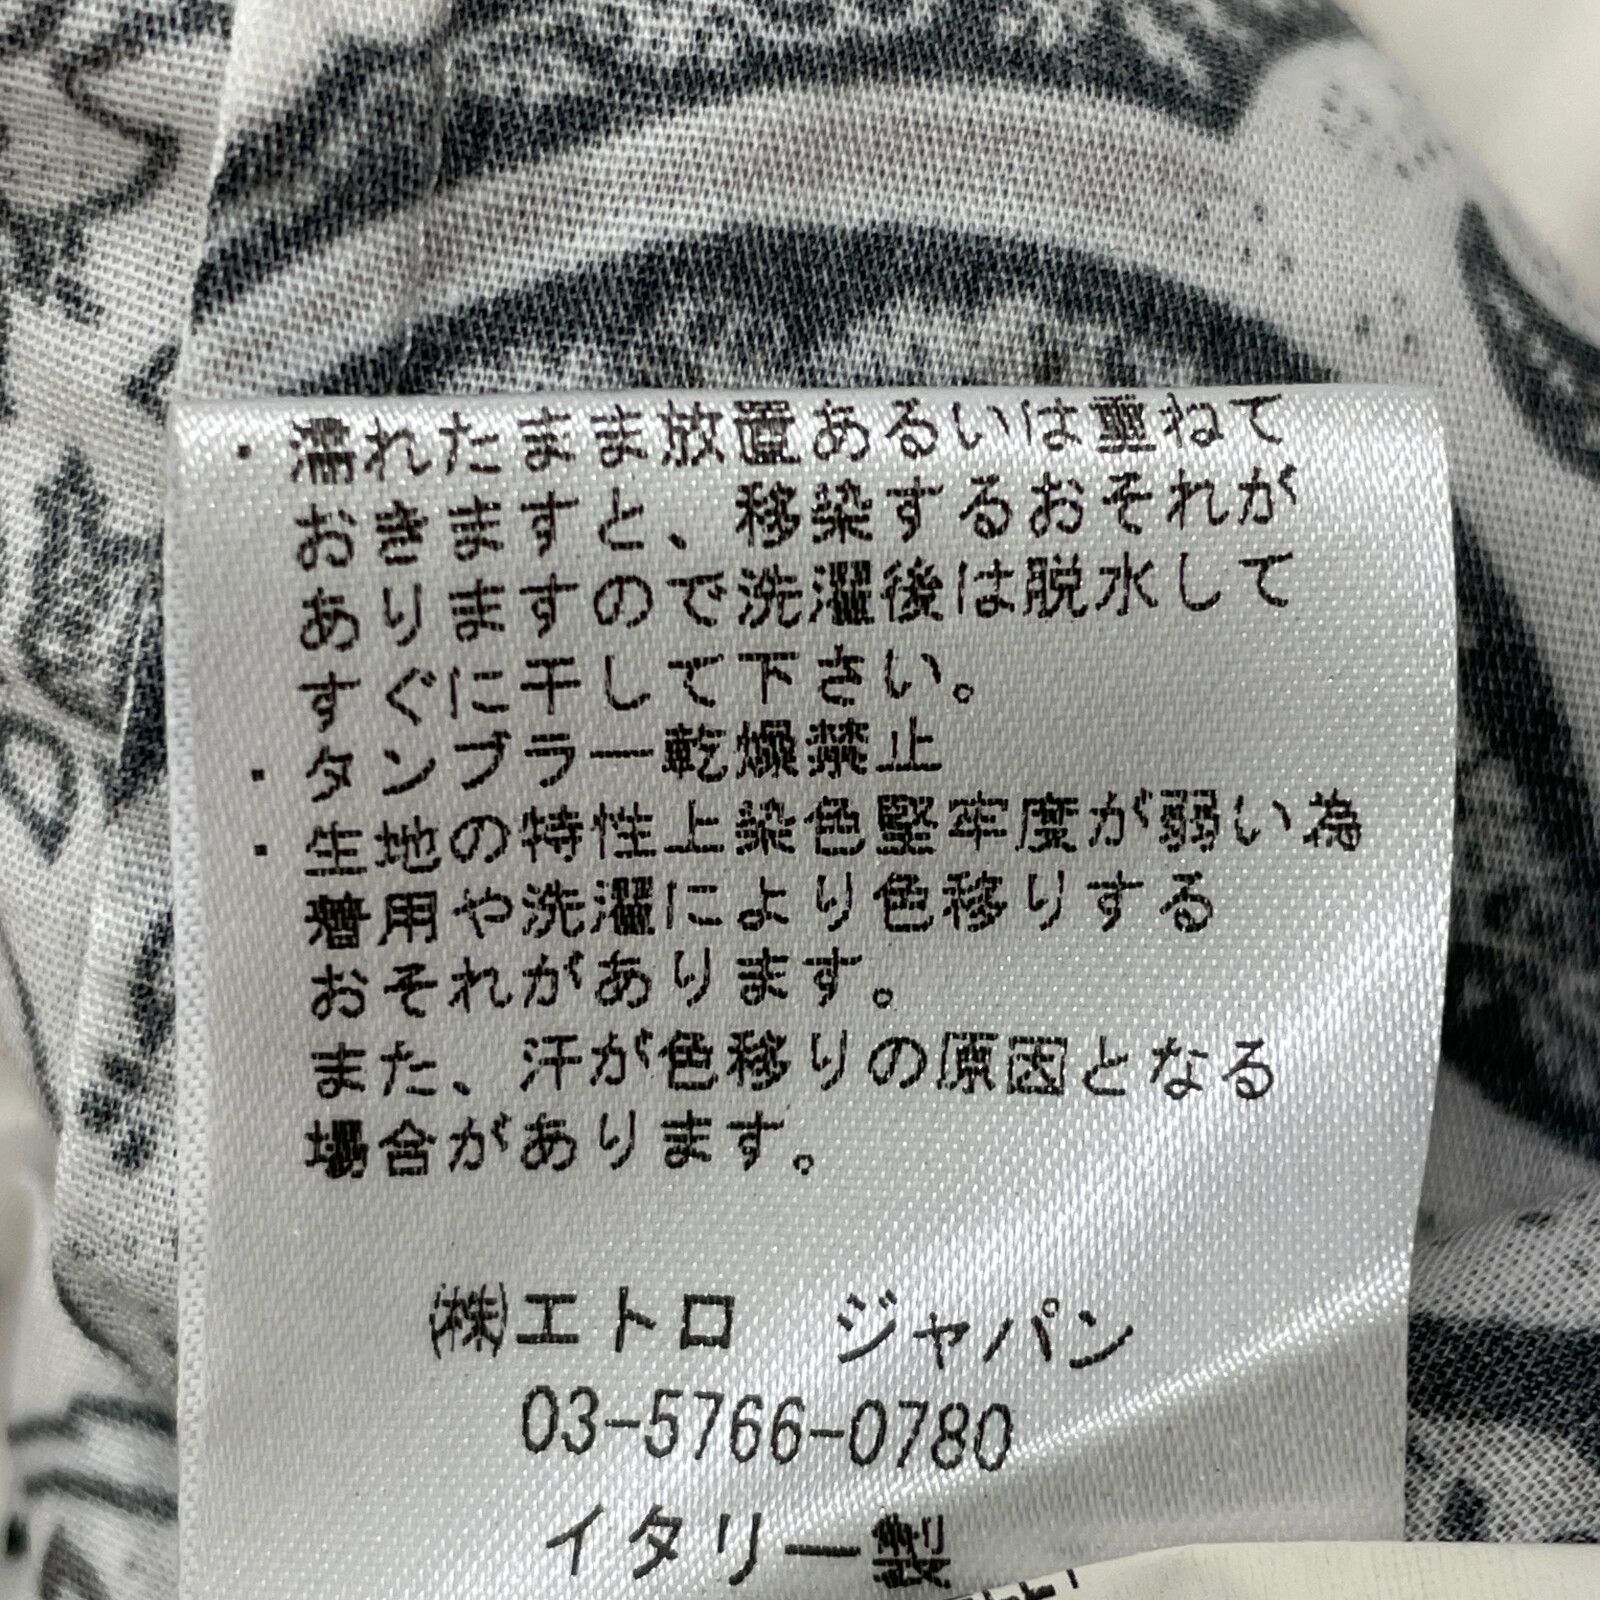 ・濡れたまま放置あるいは重ねて
おきますと、移染するおそれが
ありますので洗濯後は脱水して
すぐに干して下さい。
・タンブラー乾燥禁止
・生地の特性上染色堅牢度が弱い為
着用や洗濯により色移りする
おそれがあります。
また、汗が色移りの原因となる
場合があります。
㈱エトロ　ジャパン
03-5766-0780
イタリー製